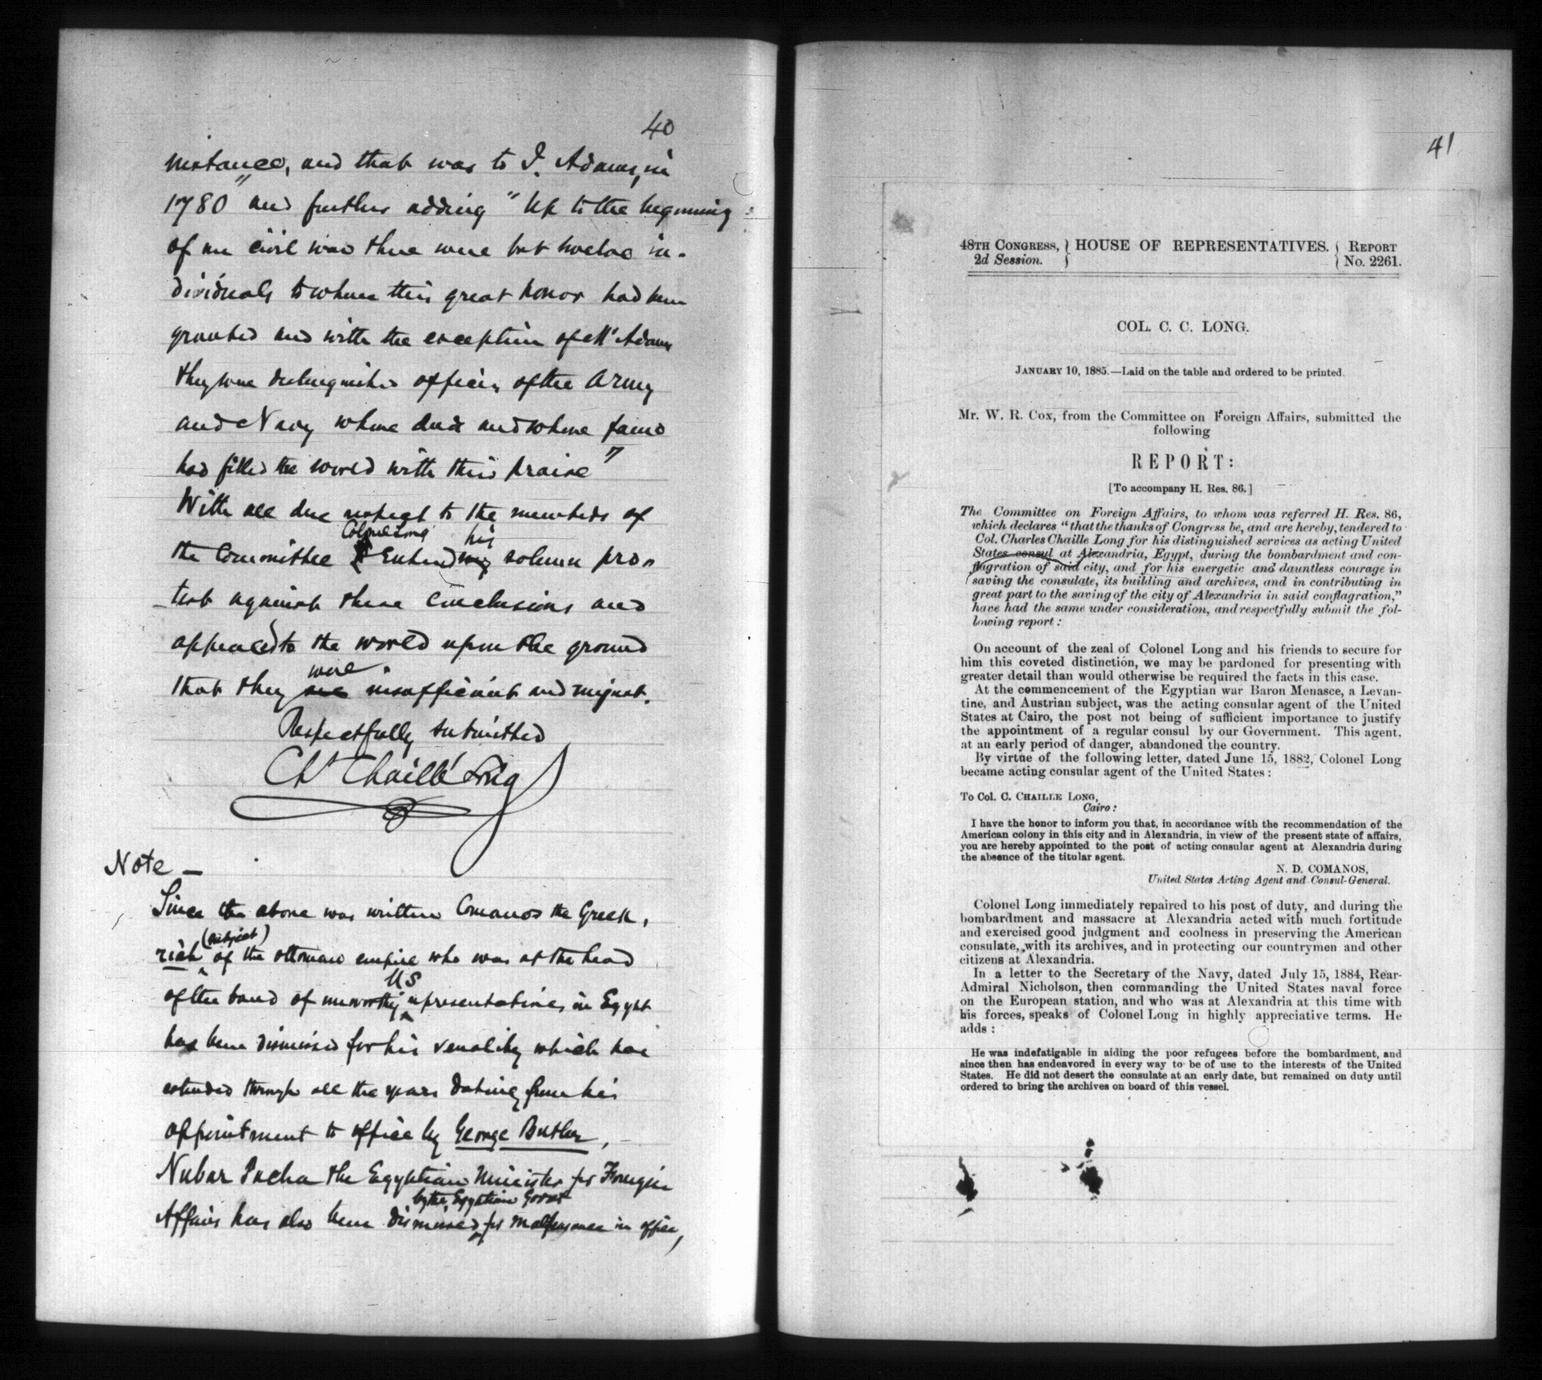 40
instance, and that was to J. Adams, in
1780" and further adding "Up to the beginning
of our civil war there were but twelve in-
dividuals to whom this great honor had been
granted and with the exception of Mr Adams
they were distinguished officers of the Army
and Navy whose deeds and whose fame
had filled the world with their praise"
With all due respect to the members of
Colonel Long his
the Committee Entered my solemn pro-
test against these conclusions and
appealed to the world upon the ground
were
that they are insufficient and unjust.
Respectfully submitted
Ch. Chaillé Long
Note —
Since the above was written Comanos the Greek,
(subject)
rich of the ottoman empire who was at the head
US
of the band of unworthy representatives in Egypt
has been dismissed for his venality which has
extended through all the years dating from his
appointment to office by George Butler,
Nubar Pacha the Egyptian Minister for Foreign
by the Egyptian Govmt
Affairs has also been dismissed for malfeasance in office,
41
48TH CONGRESS, } HOUSE OF REPRESENTATIVES. { REPORT
2d Session. } { No. 2261.
COL. C. C. LONG.
JANUARY 10, 1885.—Laid on the table and ordered to be printed.
Mr. W. R. Cox, from the Committee on Foreign Affairs, submitted the
following
REPORT:
[To accompany H. Res. 86.]
The Committee on Foreign Affairs, to whom was referred H. Res. 86,
which declares "that the thanks of Congress be, and are hereby, tendered to
Col. Charles Chaille Long for his distinguished services as acting United
States consul at Alexandria, Egypt, during the bombardment and con-
flagration of said city, and for his energetic and dauntless courage in
saving the consulate, its building and archives, and in contributing in
great part to the saving of the city of Alexandria in said conflagration,"
have had the same under consideration, and respectfully submit the fol-
lowing report:
On account of the zeal of Colonel Long and his friends to secure for
him this coveted distinction, we may be pardoned for presenting with
greater detail than would otherwise be required the facts in this case.
At the commencement of the Egyptian war Baron Menasce, a Levan-
tine, and Austrian subject, was the acting consular agent of the United
States at Cairo, the post not being of sufficient importance to justify
the appointment of a regular consul by our Government. This agent,
at an early period of danger, abandoned the country.
By virtue of the following letter, dated June 15, 1882, Colonel Long
became acting consular agent of the United States:
To Col. C. CHAILLE LONG,
Cairo:
I have the honor to inform you that, in accordance with the recommendation of the
American colony in this city and in Alexandria, in view of the present state of affairs,
you are hereby appointed to the post of acting consular agent at Alexandria during
the absence of the titular agent.
N. D. COMANOS,
United States Acting Agent and Consul-General.
Colonel Long immediately repaired to his post of duty, and during the
bombardment and massacre at Alexandria acted with much fortitude
and exercised good judgment and coolness in preserving the American
consulate, with its archives, and in protecting our countrymen and other
citizens at Alexandria.
In a letter to the Secretary of the Navy, dated July 15, 1884, Rear-
Admiral Nicholson, then commanding the United States naval force
on the European station, and who was at Alexandria at this time with
his forces, speaks of Colonel Long in highly appreciative terms. He
adds:
He was indefatigable in aiding the poor refugees before the bombardment, and
since then has endeavored in every way to be of use to the interests of the United
States. He did not desert the consulate at an early date, but remained on duty until
ordered to bring the archives on board of this vessel.